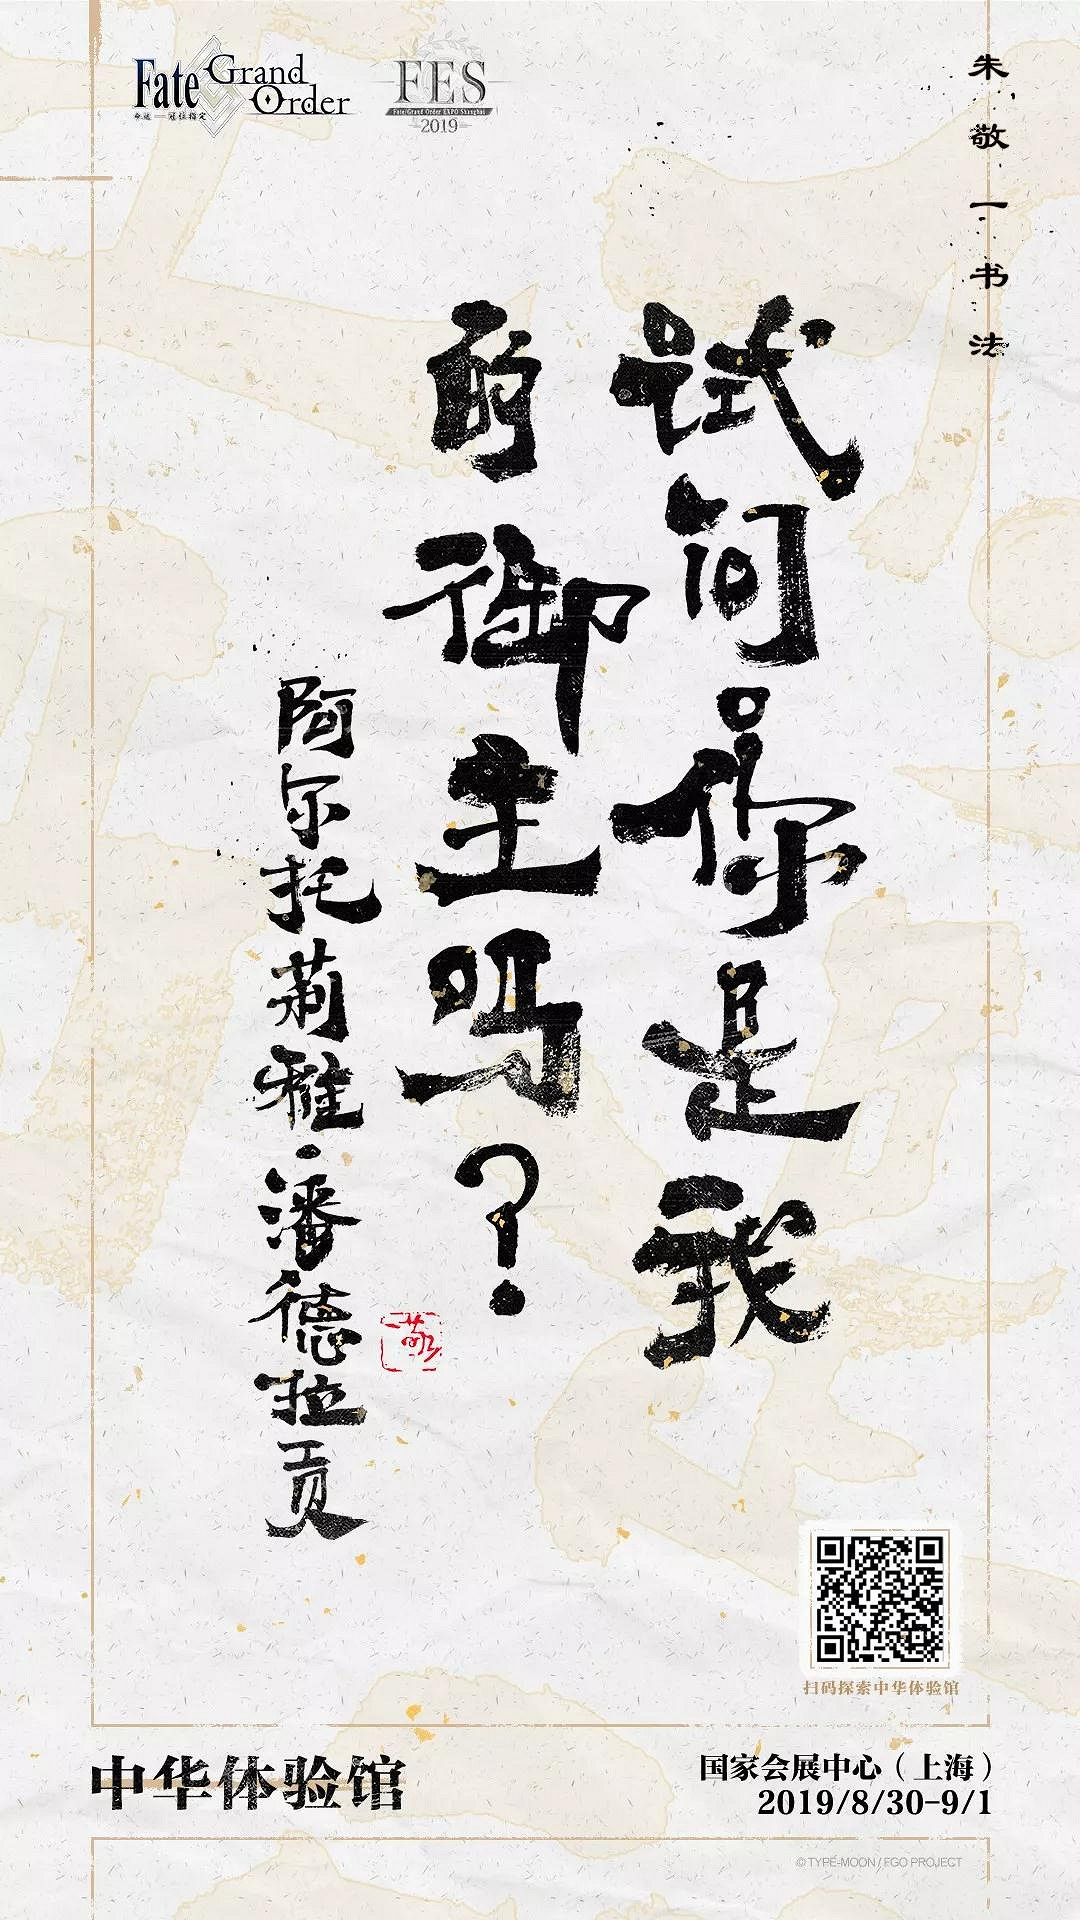 Fate Grand Order
命运—冠位指定
FES
Fate/Grand Order EXPO Shanghai
2019
朱敬一书法
试问你是我
的御主吗？
阿尔托莉雅·潘德拉贡
敬
扫码探索中华体验馆
中华体验馆
国家会展中心（上海）
2019/8/30-9/1
© TYPE-MOON / FGO PROJECT